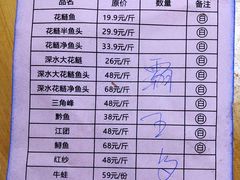 品名 原价 数量 备注
花鲢鱼 19.9元/斤 白
花鲢半鱼头 29.9元/斤 白
花鲢净鱼头 33.9元/斤 白
深水大花鲢 26元/斤 白
深水大花鲢鱼头 48元/斤 白
深水花鲢净鱼头 68元/斤 白
三角峰 48元/斤 白
黔鱼 38元/斤 白
江团 48元/斤 白
鲟鱼 68元/斤 白
红纱 48元/斤
牛蛙 59元/份
霸
王